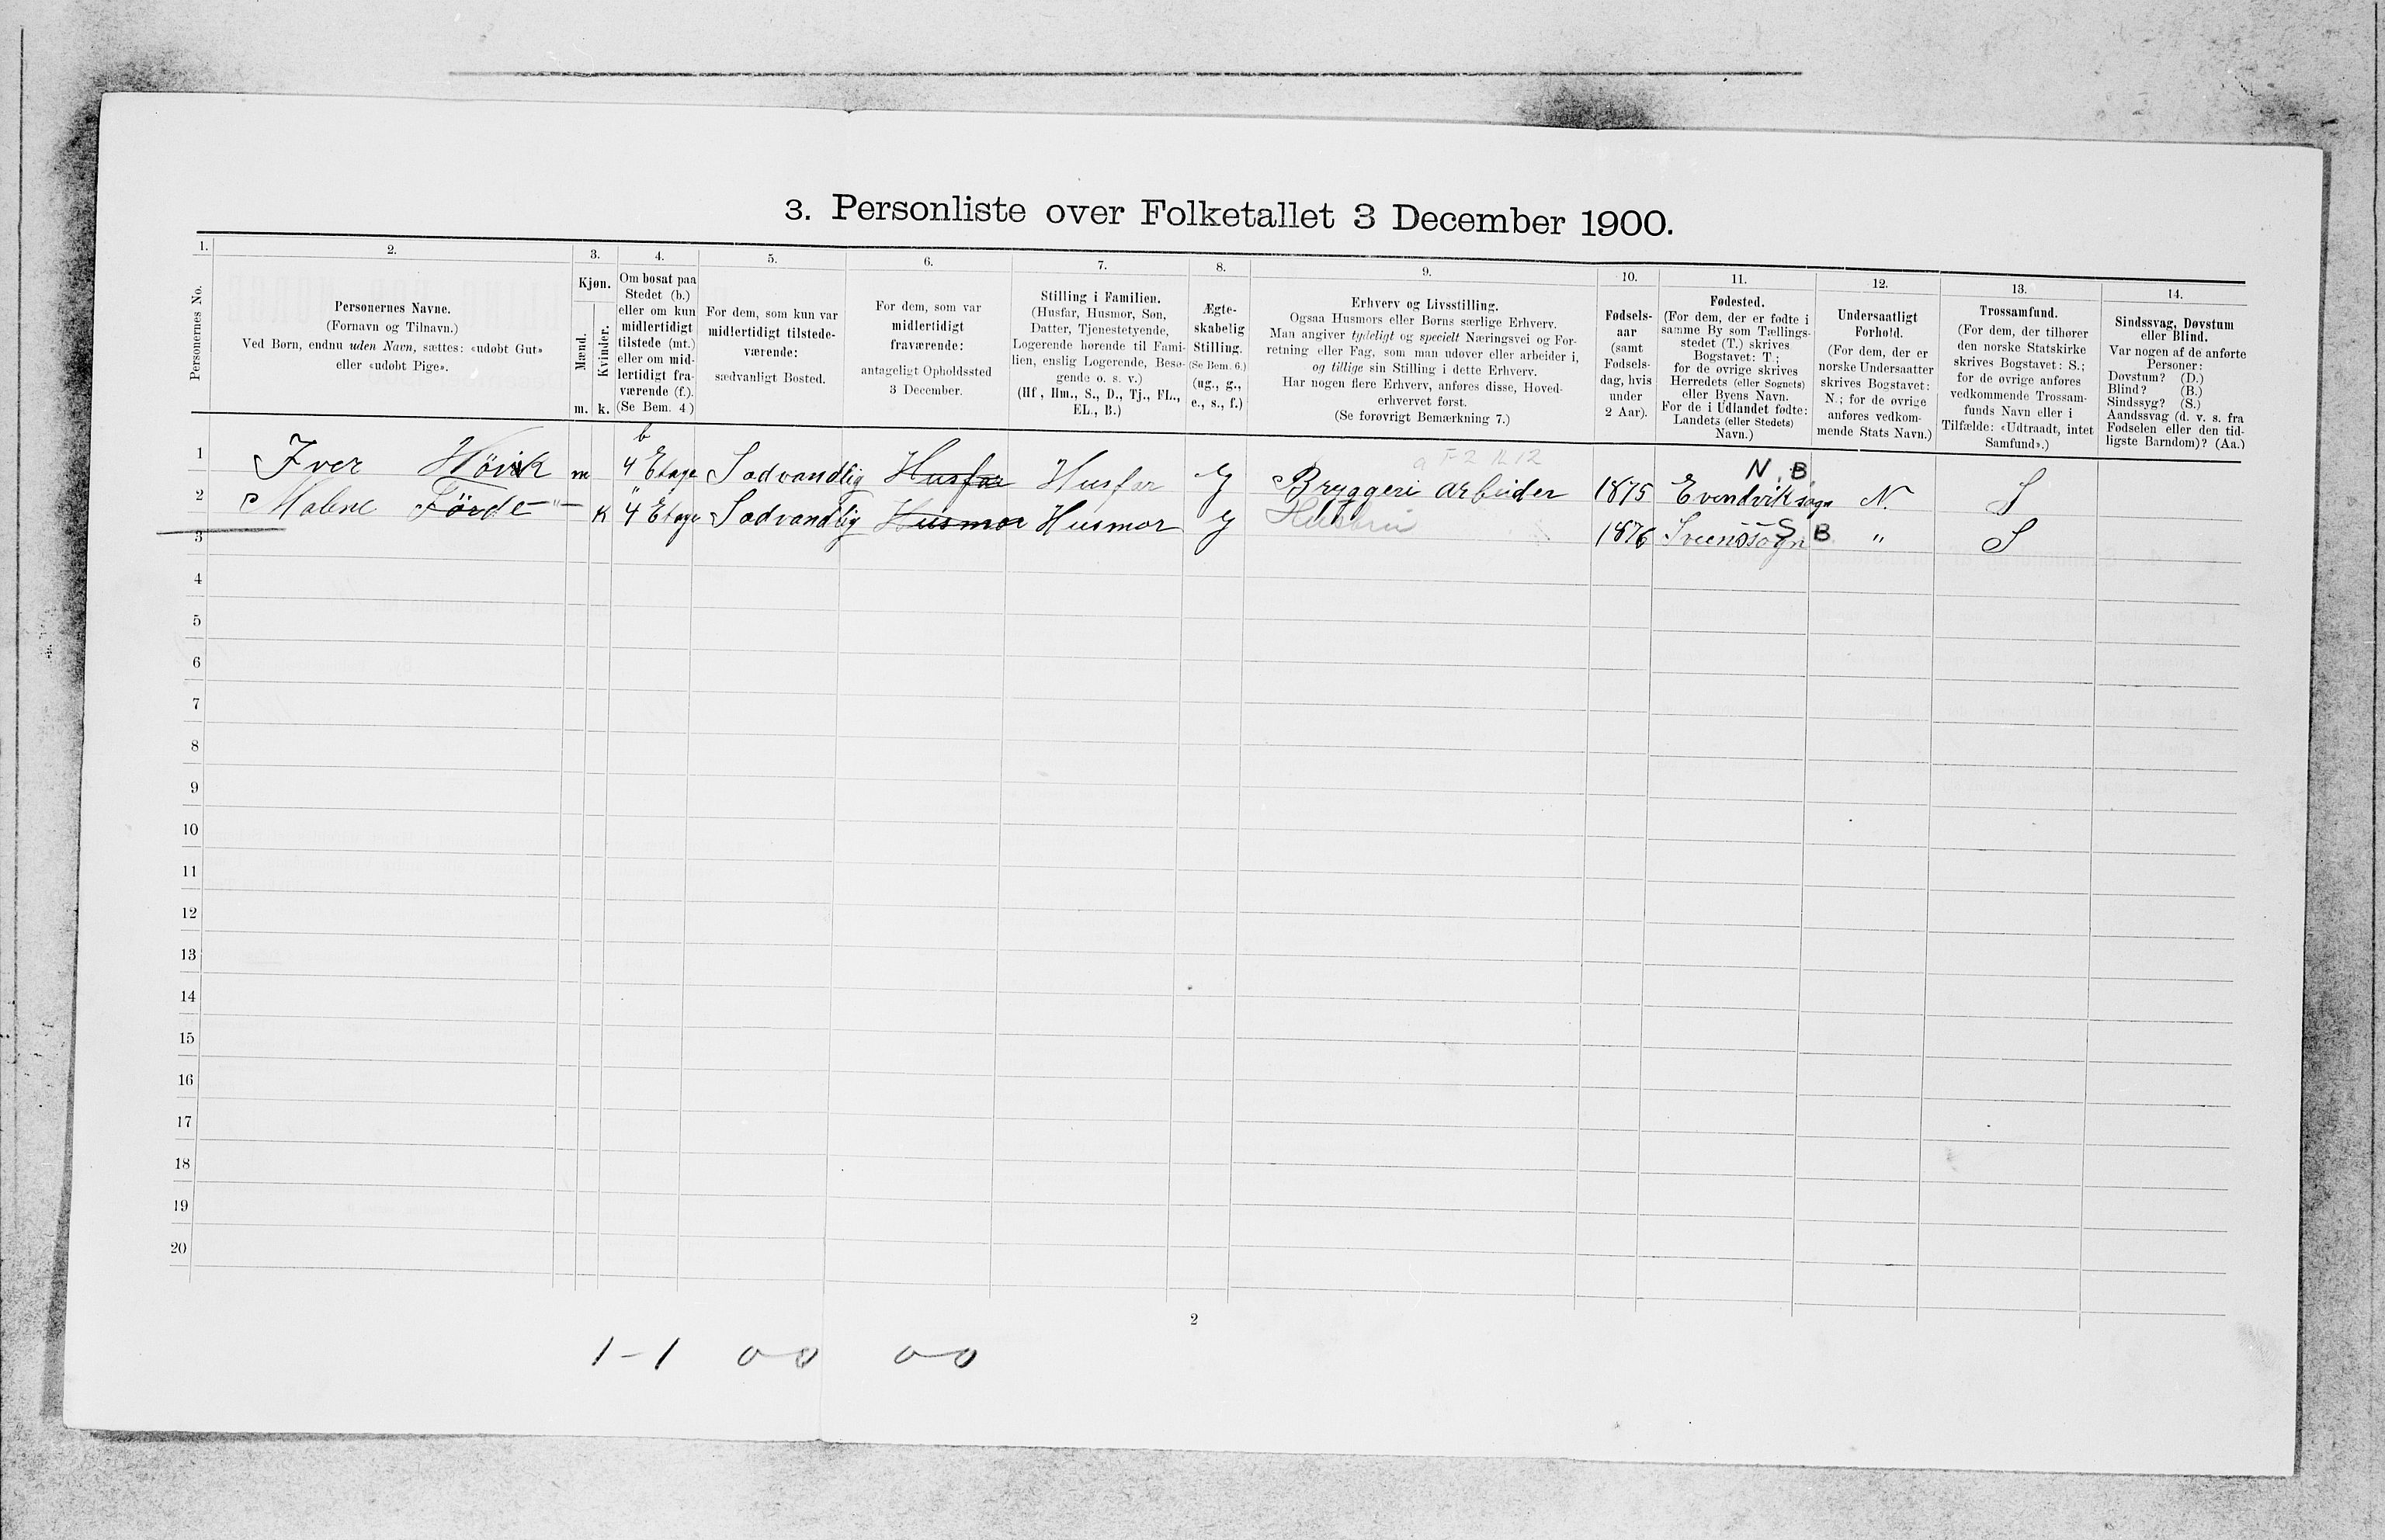 3. Personliste over Folketallet 3 December 1900.
1. 2. 3. 4. 5. 6. 7. 8. 9. 10. 11. 12. 13. 14.
Personernes No.
Personernes Navne.
(Fornavn og Tilnavn.)
Ved Børn, endnu uden Navn, sættes: «udøbt Gut»
eller «udøbt Pige».
Kjøn.
Mænd.
Kvinder.
m. k.
Om bosat paa
Stedet (b.)
eller om kun
midlertidigt
tilstede (mt.)
eller om mid-
lertidigt fra-
værende (f.).
(Se Bem. 4)
For dem, som kun var
midlertidigt tilstede-
værende:
sædvanligt Bosted.
For dem, som var
midlertidigt
fraværende:
antageligt Opholdssted
3 December.
Stilling i Familien.
(Husfar, Husmor, Søn,
Datter, Tjenestetyende,
Logerende hørende til Fami-
lien, enslig Logerende, Besø-
gende o. s. v.)
(Hf., Hm., S., D., Tj., FL.,
EL., B.)
Ægte-
skabelig
Stilling.
(Se Bem. 6.)
(ug., g.,
e., s., f.)
Erhverv og Livsstilling.
Ogsaa Husmors eller Børns særlige Erhverv.
Man angiver tydeligt og specielt Næringsvei og For-
retning eller Fag, som man udøver eller arbeider i,
og tillige sin Stilling i dette Erhverv.
Har nogen flere Erhverv, anføres disse, Hoved-
erhvervet først.
(Se forøvrigt Bemærkning 7.)
Fødsels-
aar
(samt
Fødsels-
dag, hvis
under
2 Aar).
Fødested.
(For dem, der er fødte i
samme By som Tællings-
stedet (T.) skrives
Bogstavet: T;
for de øvrige skrives
Herredets (eller Sognets)
eller Byens Navn.
For de i Udlandet fødte:
Landets (eller Stedets)
Navn.)
Undersaatligt
Forhold.
(For dem, der er
norske Undersaatter
skrives Bogstavet:
N.; for de øvrige
anføres vedkom-
mende Stats Navn.)
Trossamfund.
(For dem, der tilhører
den norske Statskirke
skrives Bogstavet: S.;
for de øvrige anføres
vedkommende Trossam-
funds Navn eller i
Tilfælde: «Udtraadt, intet
Samfund».)
Sindssvag, Døvstum
eller Blind.
Var nogen af de anførte
Personer:
Døvstum? (D.)
Blind? (B.)
Sindssyg? (S.)
Aandssvag (d. v. s. fra
Fødselen eller den tid-
ligste Barndom)? (Aa.)
b
N. B
1 Iver Hövik m 4 Etage Sadvandlig Husfar Husfar G Bryggeri arbeider 1875 Evendviksogn N. S
2 Malene Förde " K 4 Etage Sadvandlig Husmor Husmor G 1876 S B " S
3
4
5
6
7
8
9
10
11
12
13
14
15
16
17
18
19
20
2
1-1 0-0 0-0